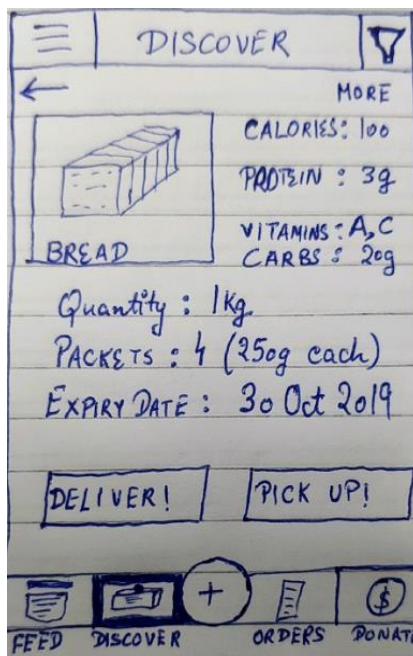 DISCOVER
MORE
CALORIES: 100
PROTEIN : 3g
VITAMINS : A,C
BREAD
CARBS : 20g
Quantity : 1kg.
PACKETS : 4 (250g each)
EXPIRY DATE : 30 Oct 2019
DELIVER!
PICK UP!
+
$
FEED
DISCOVER
ORDERS
DONAT